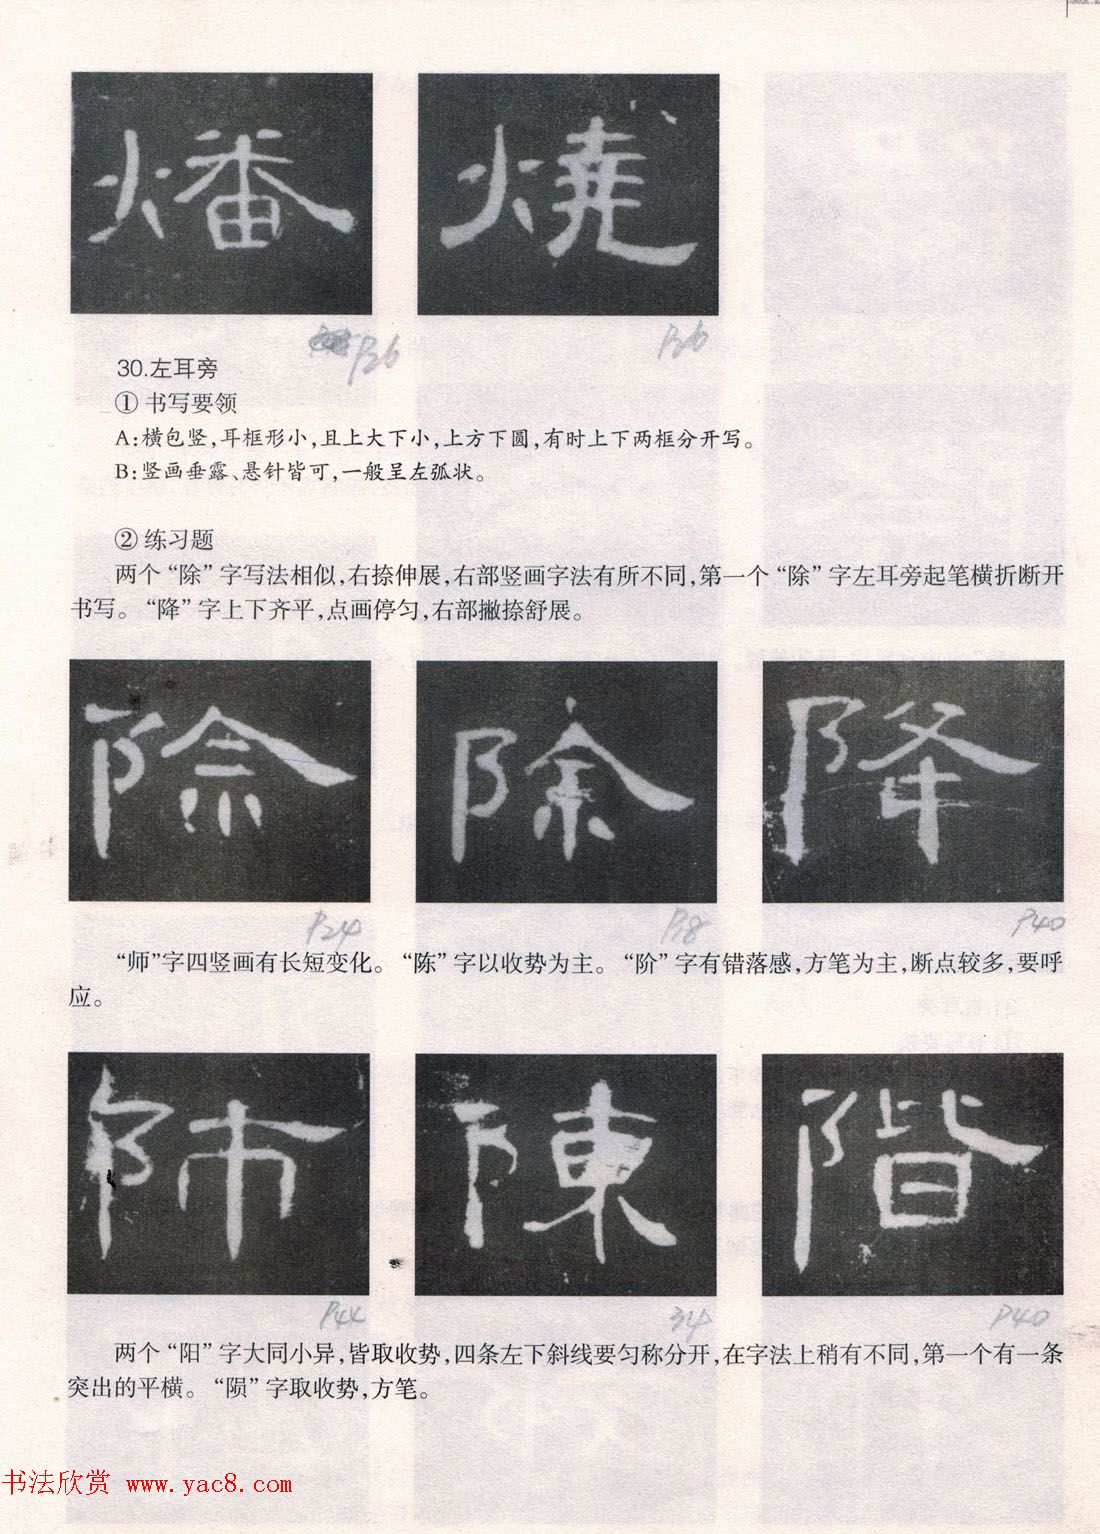 燔 燒
P36 P36
30.左耳旁
① 书写要领
A:横包竖,耳框形小,且上大下小,上方下圆,有时上下两框分开写。
B:竖画垂露、悬针皆可,一般呈左弧状。
② 练习题
两个“除”字写法相似,右捺伸展,右部竖画字法有所不同,第一个“除”字左耳旁起笔横折断开
书写。“降”字上下齐平,点画停匀,右部撇捺舒展。
除 除 降
P24 P38 P40
“师”字四竖画有长短变化。“陈”字以收势为主。“阶”字有错落感,方笔为主,断点较多,要呼
应。
師 陳 階
P44 34 P40
两个“阳”字大同小异,皆取收势,四条左下斜线要匀称分开,在字法上稍有不同,第一个有一条
突出的平横。“陨”字取收势,方笔。
书法欣赏 www.yac8.com